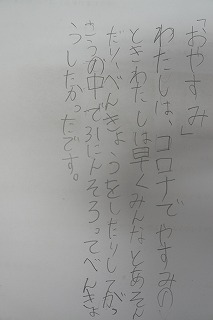 「おやすみ」
わたしは、コロナでやすみの
ときわたしは早くみんなとあそん
だり、べんきょうをしたりしてがっ
こうの中で31にんそろってべんきょ
うしたかったです。